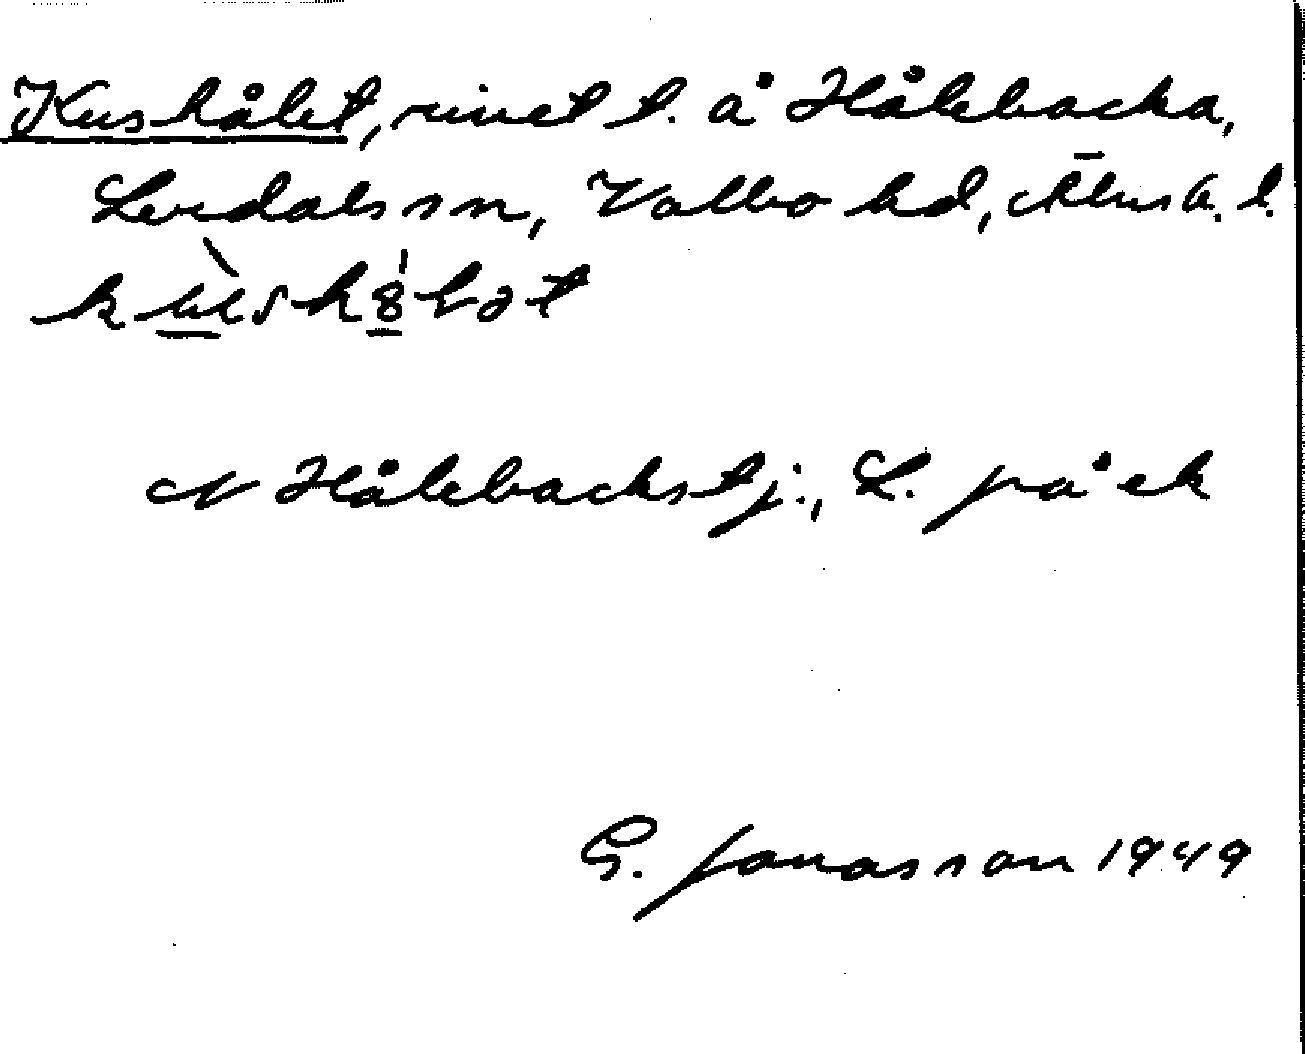 Kushålet, rivet t. å Hålebacka,
Lerdals sn, Valbo hd, Älvsb. l.
N Hålebackstj., L. på ek
G. Jonasson 1949